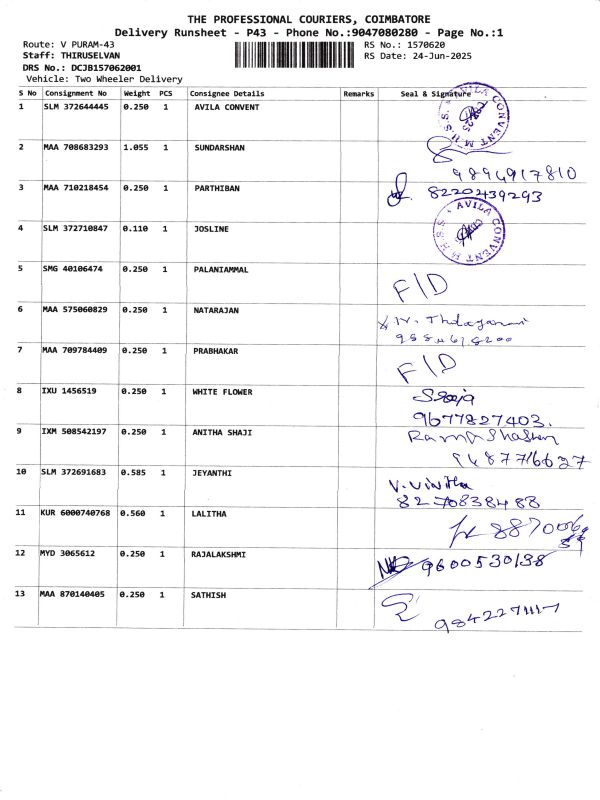 THE PROFESSIONAL COURIERS, COIMBATORE
Delivery Runsheet - P43 - Phone No.:9047080280 - Page No.:1
Route: V PURAM-43 RS No.: 1570620
Staff: THIRUSELVAN RS Date: 24-Jun-2025
DRS No.: DCJB157062001
Vehicle: Two Wheeler Delivery
S No Consignment No Weight PCS Consignee Details Remarks Seal & Signature
1 SLM 372644445 0.250 1 AVILA CONVENT AVILA CONVENT M.H.S.S.
2 MAA 708683293 1.055 1 SUNDARSHAN 9894917810
3 MAA 710218454 0.250 1 PARTHIBAN 8220239293
4 SLM 372710847 0.110 1 JOSLINE AVILA CONVENT M.H.S.S.
5 SMG 40106474 0.250 1 PALANIAMMAL F/D
6 MAA 575060829 0.250 1 NATARAJAN
7 MAA 709784409 0.250 1 PRABHAKAR F/D
8 IXU 1456519 0.250 1 WHITE FLOWER
9677827403.
9 IXM 508542197 0.250 1 ANITHA SHAJI
10 SLM 372691683 0.585 1 JEYANTHI V. Vinitha
8270838488
11 KUR 6000740768 0.560 1 LALITHA
12 MYD 3065612 0.250 1 RAJALAKSHMI 9600530138
13 MAA 870140405 0.250 1 SATHISH